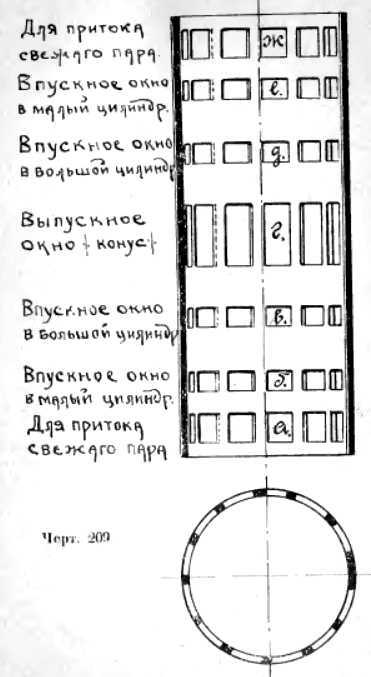 Для притока
свежаго пара.
ж
Впускное окно
в малый цилиндр.
е.
Впускное окно
в большой цилиндр
д.
Выпускное
окно (конус)
г.
Впускное окно
в большой цилиндр
в.
Впускное окно
в малый цилиндр.
б.
Для притока
свежаго пара
а.
Черт. 209